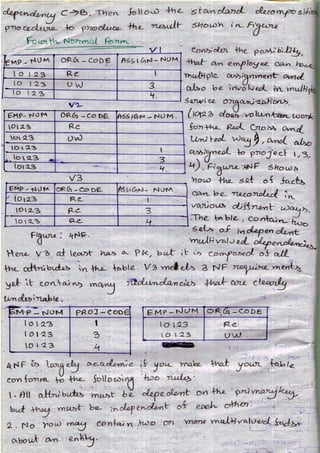 dependency C→B. Then follow the standard decomposition
procedure to produce the result shown in Figure
Fourth Normal Form
V1
EMP-NUM ORG-CODE ASSIGN-NUM
10123 RC 1
10123 UW 3
10123 4
V2
EMP-NUM ORG-CODE ASSIGN-NUM
10123 RC
10123 UW
10123 1
10123 3
10123 4
V3
EMP-NUM ORG-CODE ASSIGN-NUM
10123 RC 1
10123 RC 3
10123 RC 4
Figure: 4NF.
Consider the possibility
that an employee can have
multiple assignment and
also be involved in multiple
service organizations.
(10123 does volunteer work
for the Red Cross and
United way), and also
assigned to project 1, 3,
4). Figure 4NF shows
how the set of facts
can be recorded in
various different ways.
The table, contain two
sets of independent
multivalued dependencies.
Here V3 at least has a PK, but it is composed of all
the attributes in the table. V3 meets 3 NF requirements
yet it contains many redundancies that are clearly
undesirable.
EMP-NUM PROJ-CODE EMP-NUM ORG-CODE
10123 1 10123 RC
10123 3 10123 UW
10123 4
4NF is largely academic if you make that your table
conform to the following two rules:
1. All attributes must be depedent on the primary key
but they must be independent of each other
2. No row may contain two or more multivalued facts
about an entity.